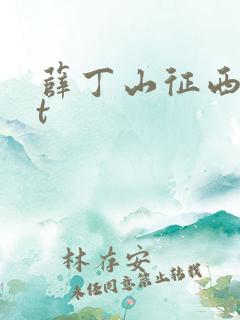 薛丁山征西
t
林存安
未经同意禁止转载